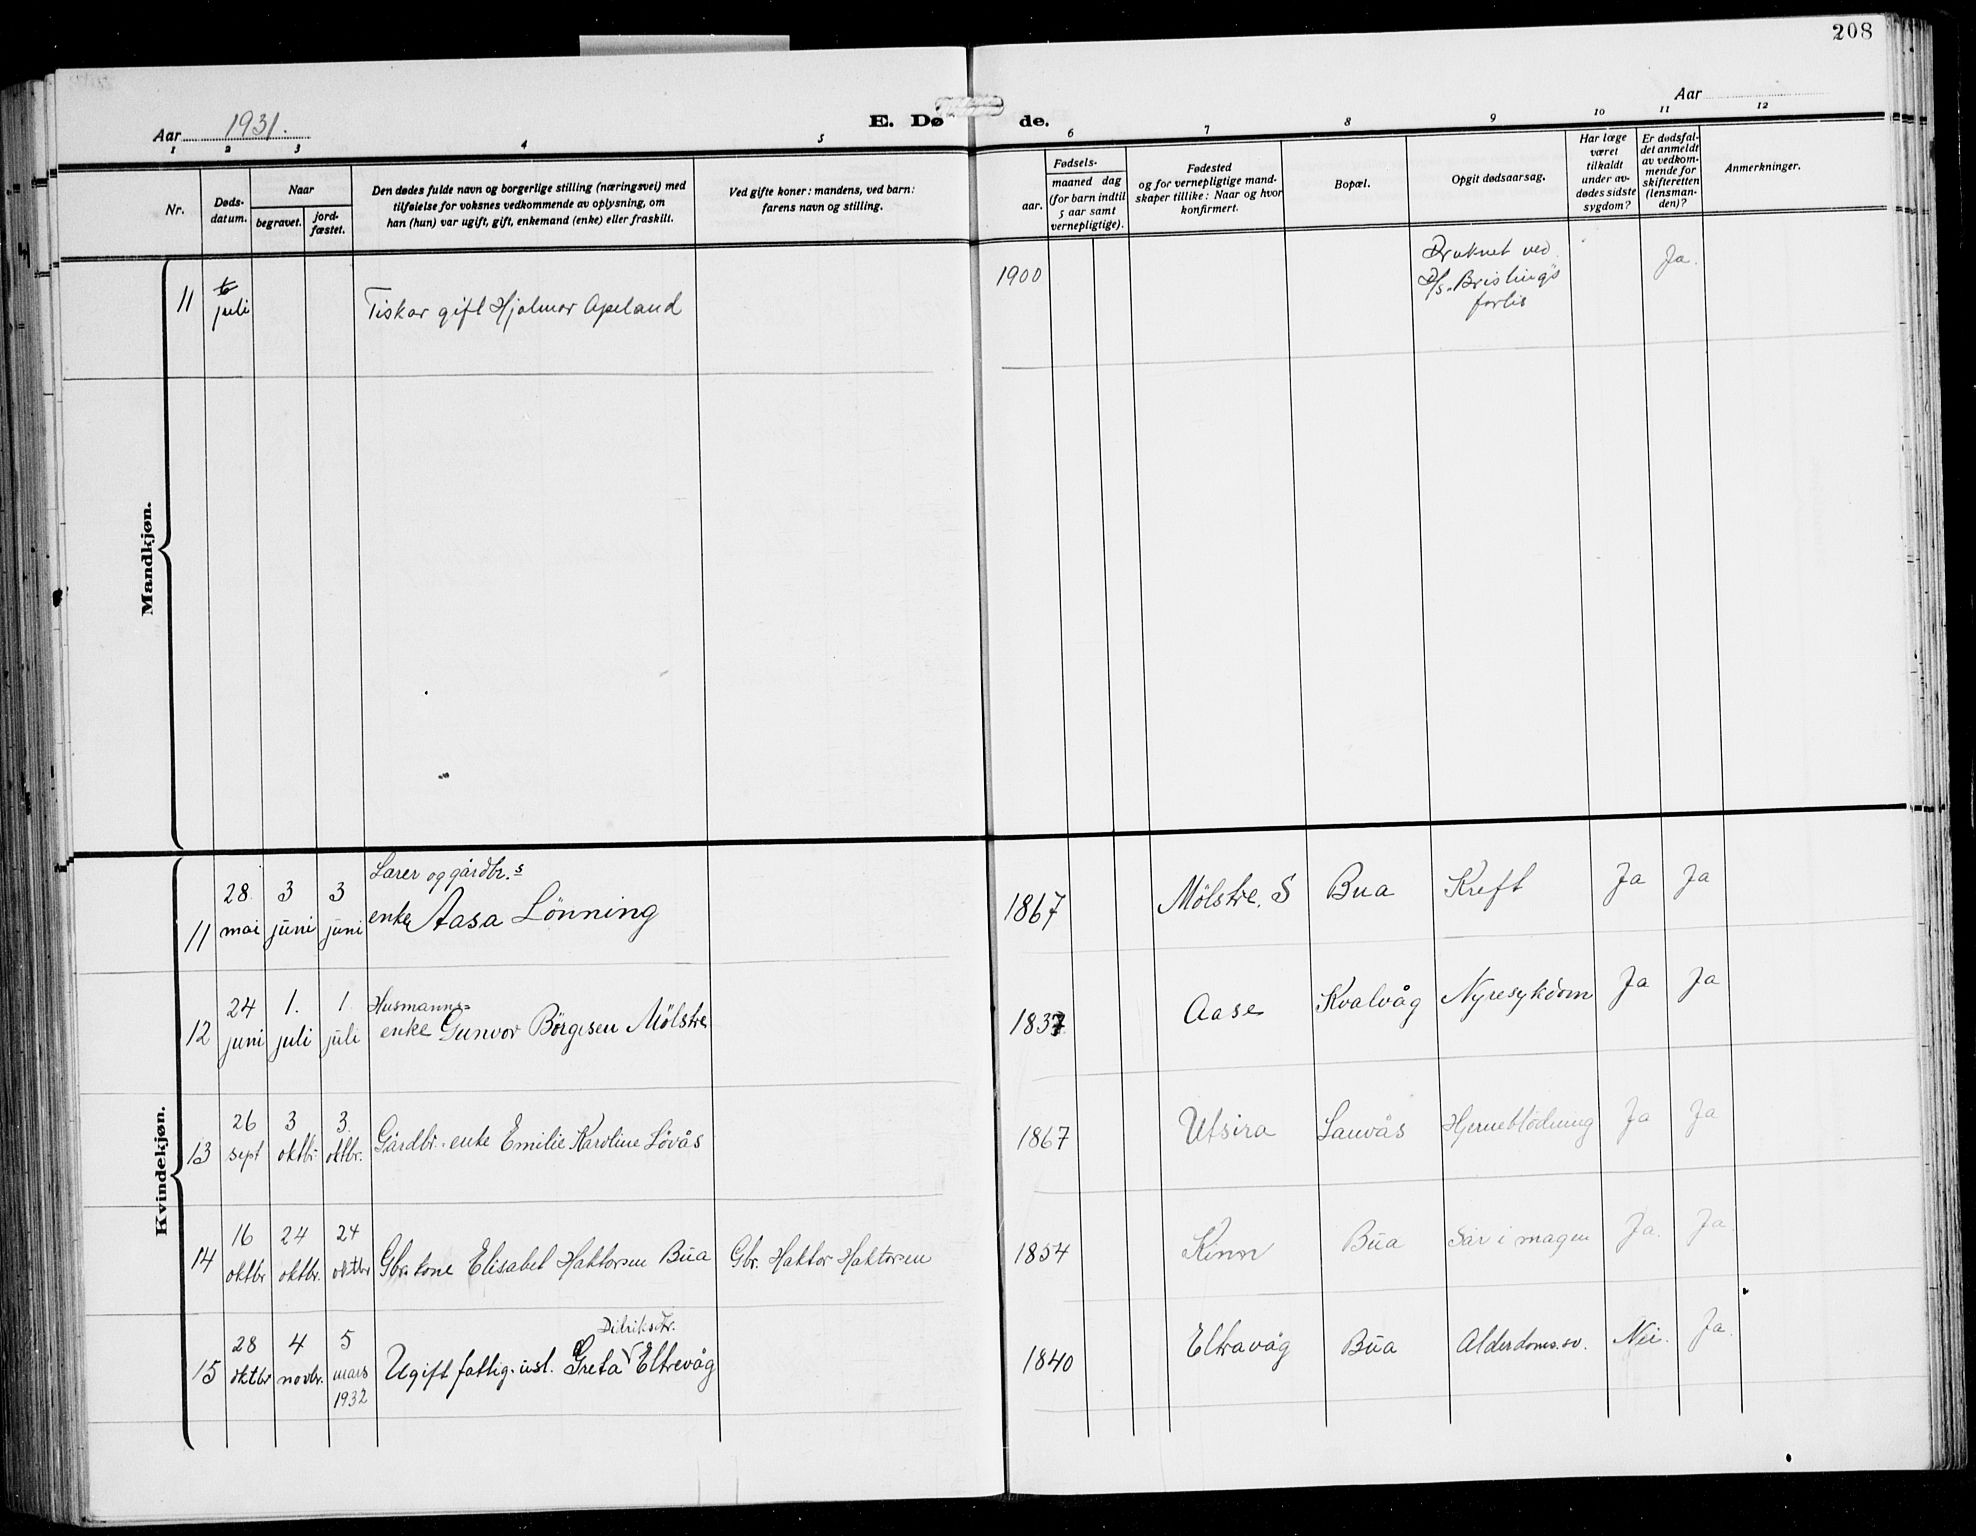 208
Aar 1931.
E. Dø de.
Aar
1 2 3 4 5 6 7 8 9 10 11 12
Nr.
Døds-
datum.
Naar
begravet.
jord-
fæstet.
Den dødes fulde navn og borgerlige stilling (næringsvei) med
tilføielse for voksnes vedkommende av oplysning, om
han (hun) var ugift, gift, enkemand (enke) eller fraskilt.
Ved gifte koner: mandens, ved barn:
farens navn og stilling.
Fødsels-
aar.
maaned dag
(for barn indtil
5 aar samt
vernepligtige).
Fødested
og for vernepligtige mand-
skaper tillike: Naar og hvor
konfirmert.
Bopæl.
Opgit dødsaarsag.
Har læge
været
tilkaldt
under av-
dødes sidste
sygdom?
Er dødsfal-
det anmeldt
av vedkom-
mende for
skifteretten
(lensman-
den)?
Anmerkninger.
Mandkjøn.
11
6
juli
Fiskar gift Hjalmar Apeland
1900
Druknet ved
D/s. Brisling's
forlis
Ja.
Kvindekjøn.
11
28
mai
3
juni
3
juni
Lærer og gårdbr.s
enke Aasa Lönning
1867
Mölstre. S
Bua
Kreft
Ja
Ja
12
24
juni
1.
juli
1.
juli
Husmanns=
enke Gunvor Börgesen Mölstre
1837
Aase
Kvalvåg
Nyresykdom
Ja
Ja
13
26
sept
3
oktbr.
3.
oktbr.
Gårdbr. enke Emilie Karoline Lövås
1867
Utsira
Lauvås
Hjerneblödning
Ja
Ja
14
16
oktbr
24
oktbr.
24
oktbr
Gbr. kone Elisabet Haktorsen Bua
Gbr. Haktor Haktorsen
1854
Kinn
Bua
Sår i magen
Ja.
Ja.
15
28
oktbr
4
novbr.
5
mars
1932
Didriksdtr.
Ugift fattig. usl. Greta Eltrevåg
1840
Eltravåg
Bua
Alderdoms.sv.
Nei.
Ja.